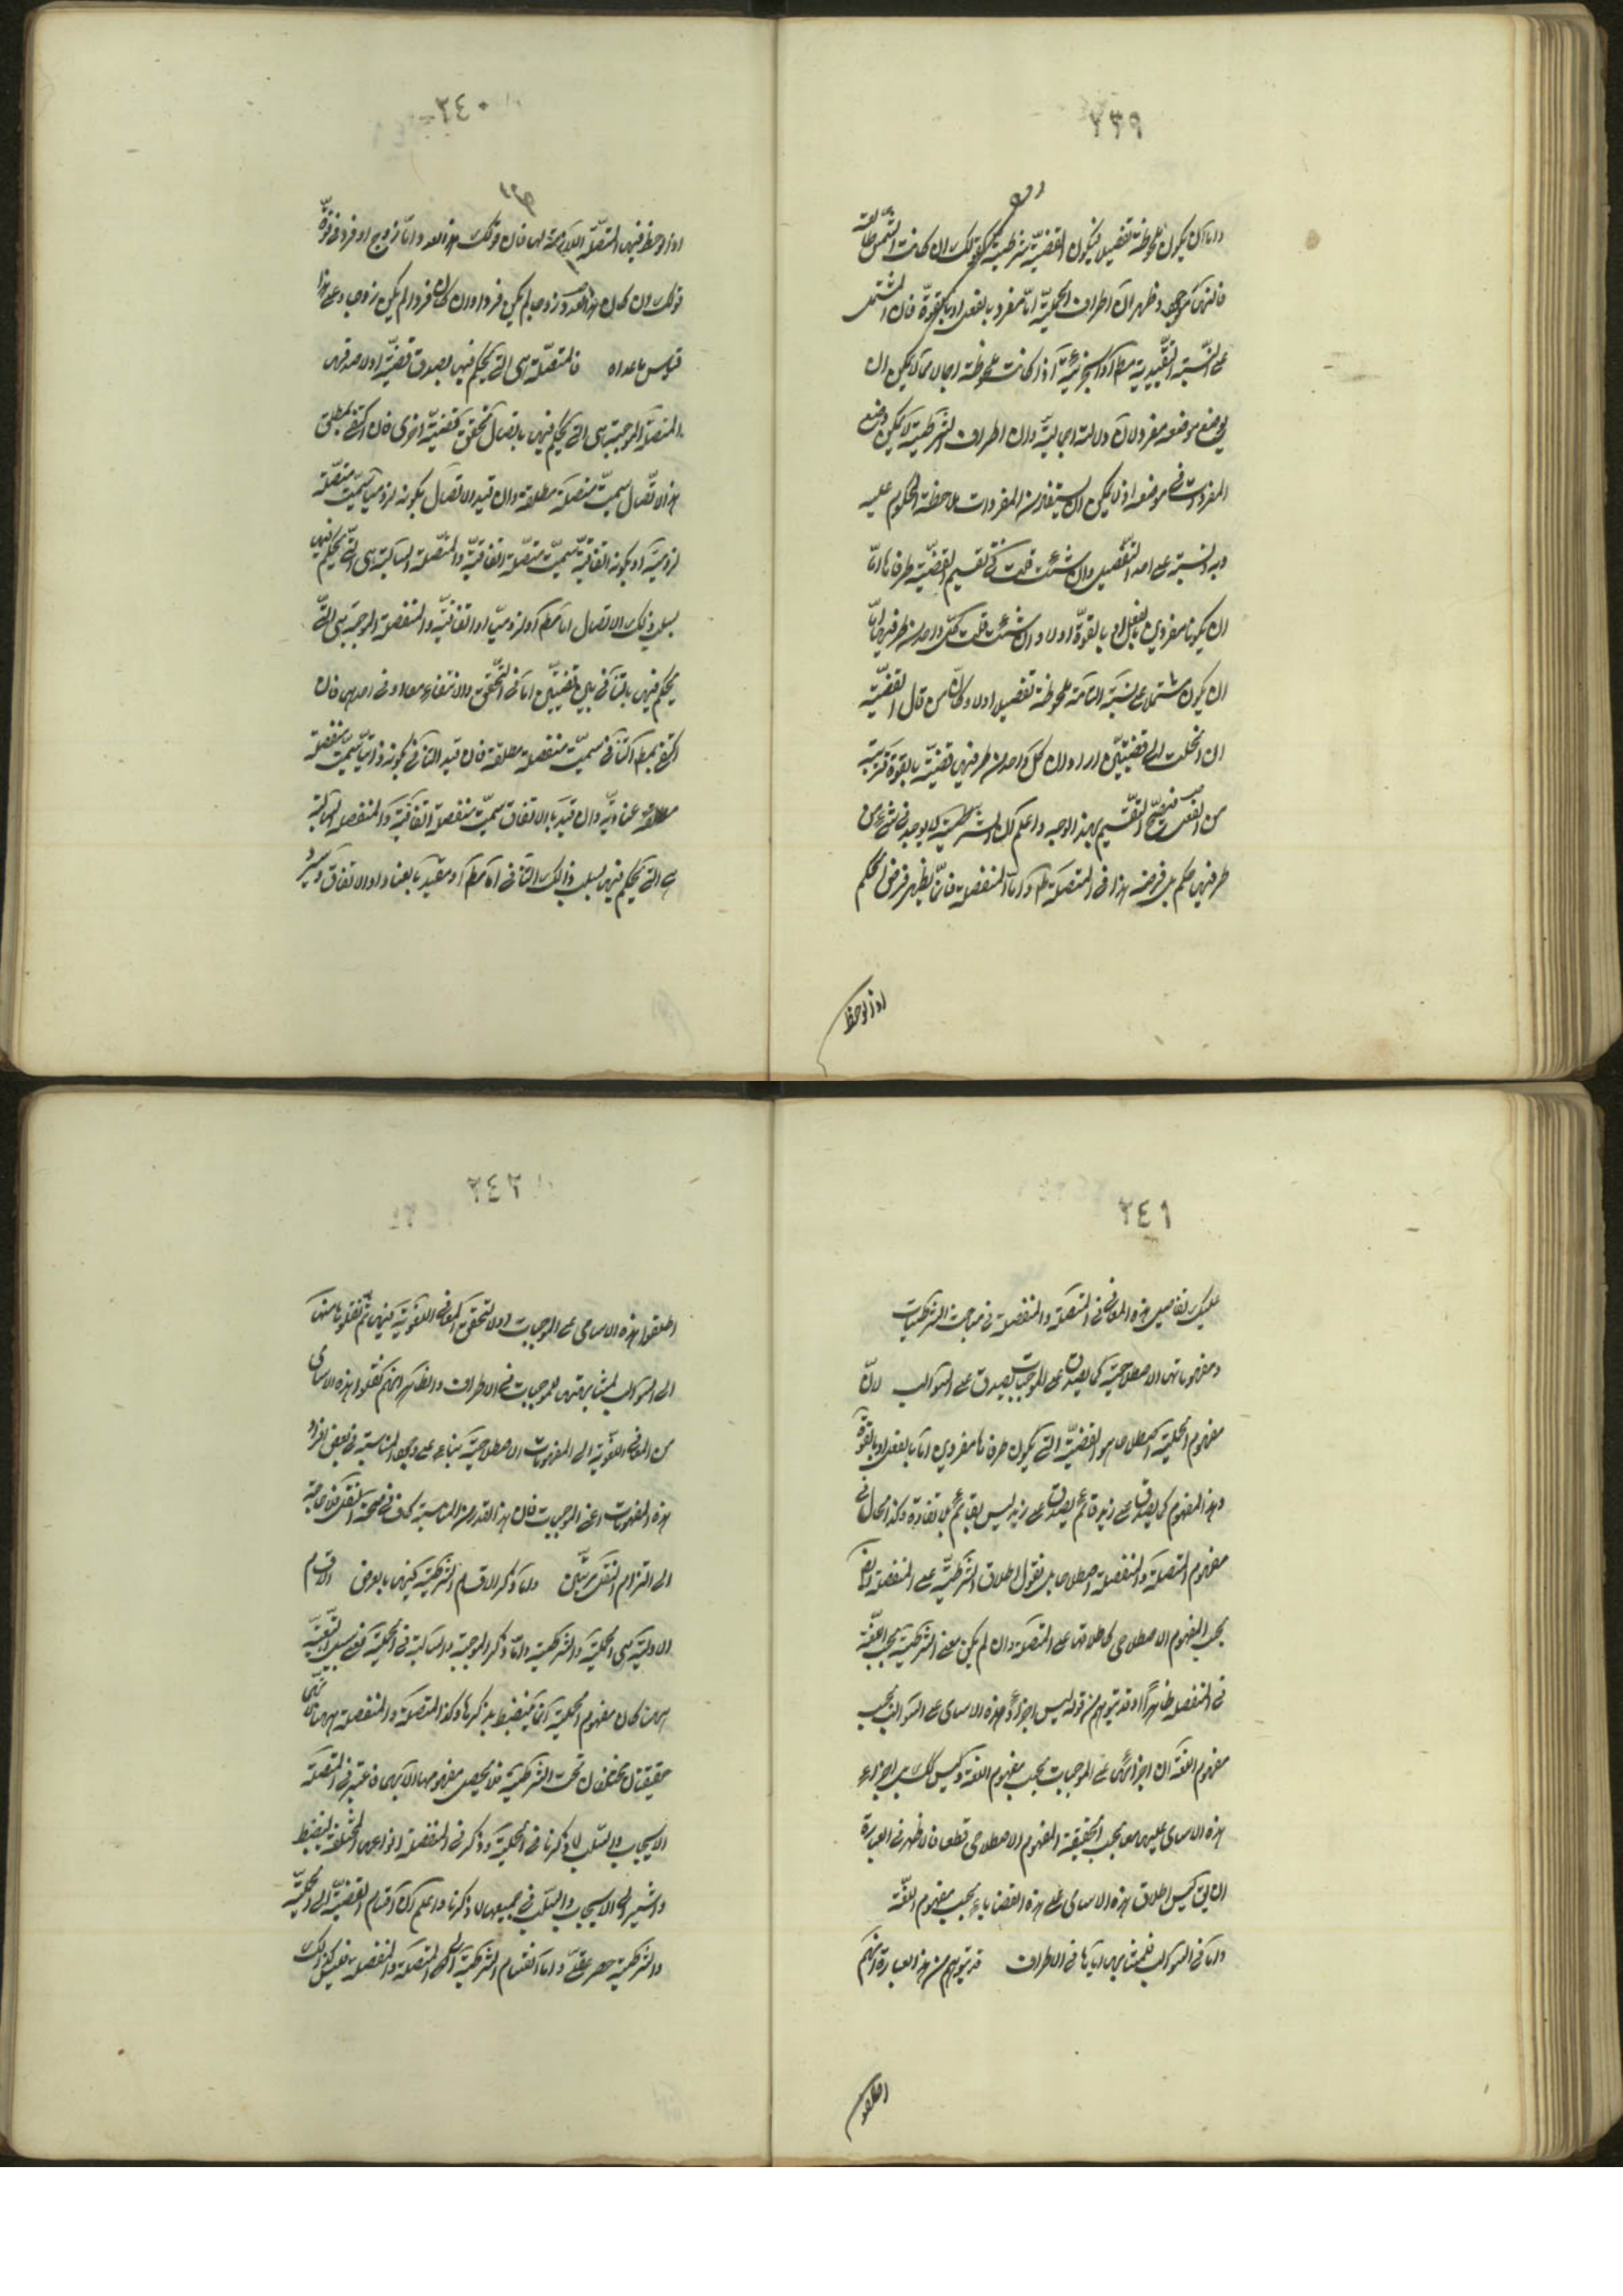 ٢٣٩
واما ان يكون ملحوظة تفصيلا فيكون القضية شرطية كقولك ان كانت الشمس طالعة
فالنهار موجود وظهر ان اطراف الحملية اما مفرد بالفعل او بالقوة فان المشتمل
على النسبة التقييدية مطلقا او الخبرية اذا كانت ملحوظة اجمالا مما يمكن ان
يوضع موضعه مفرد لان دلالته اجمالية وان اطراف الشرطية لا يمكن وضع
المفردات في موضعه اذ لا يمكن ان يستفاد من المفردات ملاحظة المحكوم عليه
وبه والنسبة على هذا التفصيل وان شئت قلت في تقسيم القضية طرفاها اما
ان يكونا مفردين بالفعل او بالقوة اولا وان شئت قلت كل واحد من طرفيها اما
ان يكون مشتملا على نسبة التامة ملحوظة تفصيلا اولا وكان من قال القضية
ان انحلت الى قضيتين اراد ان كل واحد من طرفيها قضية بالقوة قريبة
من الفعل فيصح التقسيم بهذا الوجه واعلم ان الشرطية لا يوجد في شيء من
طرفيها حكم بل فرضه هذا في المتصلة ظاهر واما المنفصلة فانما يظهر فرض الحكم
اذا لوحظ
٢٤٠
اذا لوحظ فيها المتصلة اللازمة لها فان قولك هذا العدد اما زوج او فرد في قوة
قولك ان كان هذا العدد زوجا لم يكن فردا وان كان فردا لم يكن زوجا وعلى هذا
قياس ما عداه فالمتصلة هي التي يحكم فيها بصدق قضية او لا صدقها
المتصلة الموجبة هي التي يحكم فيها باتصال تحقق قضية اخرى فان اكتفى بمطلق
هذا الاتصال سميت متصلة مطلقة وان قيد الاتصال بكونه لزوميا سميت متصلة
لزومية او بكونه اتفاقية سميت متصلة اتفاقية والمتصلة السالبة هي التي يحكم فيها
بسلب ذلك الاتصال اما مطلقا او لزوميا او اتفاقية والمنفصلة الموجبة هي التي
يحكم فيها بالتنافي بين قضيتين اما في التحقق والانتفاء معا او في احدهما فان
اكتفى بمطلق التنافي سميت منفصلة مطلقة فان قيد التنافي بكونه ذاتيا سميت منفصلة
مطلقة عنادية وان قيد بالاتفاق سميت منفصلة اتفاقية والمنفصلة السالبة
هي التي يحكم فيها بسلب ذلك التنافي اما مطلقا او مقيدا بالعناد او الاتفاق وسيرد
٢٤١
عليك تفاصيل هذه المعاني في المتصلة والمنفصلة في مباحث الشرطيات
ومفهوماتها الاصطلاحية كما يصدق على الموجبات يصدق على السوالب لان
مفهوم الحملية اصطلاحا هو القضية التي يكون طرفاها مفردين اما بالفعل او بالقوة
وهذا المفهوم كما يصدق على زيد قائم يصدق على زيد ليس بقائم بلا تفاوت وكذا الحال في
مفهوم المتصلة والمنفصلة اصطلاحا بل نقول اطلاق الشرطية على المنفصلة ايضا
بحسب المفهوم الاصطلاحي كاطلاقها على المتصلة وان لم يكن معنى الشرطية بحسب اللغة
في المنفصلة ظاهرا وقد يتوهم من قوله ليس اجراء هذه الاسامي على السوالب بحسب
مفهوم اللغة ان اجرائها على الموجبات بحسب مفهوم اللغة وليس كذلك بل اجراء
هذه الاسامي عليهما معا بحسب الحقيقة المفهوم الاصطلاحي قطعا فالاظهر في العبارة
ان يق ليس اطلاق هذه الاسامي على هذه القضايا بحسب مفهوم اللغة
واما في السوالب فلمشابهتها اياها في الاطراف قد يتوهم من هذه العبارة انهم
اطلقوا
٢٤٢
اطلقوا هذه الاسامي على الموجبات اولا لتحقق المعاني اللغوية فيها ثم نقلوها منها
الى السوالب لمشابهتها للموجبات في الاطراف والظاهر انهم نقلوا هذه الاسامي
من المعاني اللغوية الى المفهومات الاصطلاحية بناء على وجود المناسبة في بعض افراد
هذه المفهومات اعني الموجبات فان هذا القدر من المناسبة كاف في صحة النقل فلا حاجة
الى التزام النقل مرتين واما ذكر الاقسام الشرطية فيها بالعرض الاقسام
الاولية هي الحملية والشرطية واما ذكر الموجبة والسالبة في الحملية فعلى سبيل التبعية
هيهنا كان مفهوم الحملية انما ينضبط بذكرها وكذا المتصلة والمنفصلة هيهنا
حقيقتان مختلفتان تحت الشرطية فلا يحصل مفهومها الا بهما فاعتبر في المتصلة
الايجاب والسلب لما ذكرنا في الحملية وذكر في المنفصلة انواعها المختلفة لينضبط
واشير الى الايجاب والسلب في جميعها لما ذكرنا واعلم ان اقسام القضية الى الحملية
والشرطية حصر عقلي واما انقسام الشرطية الى المتصلة والمنفصلة فليس كذلك